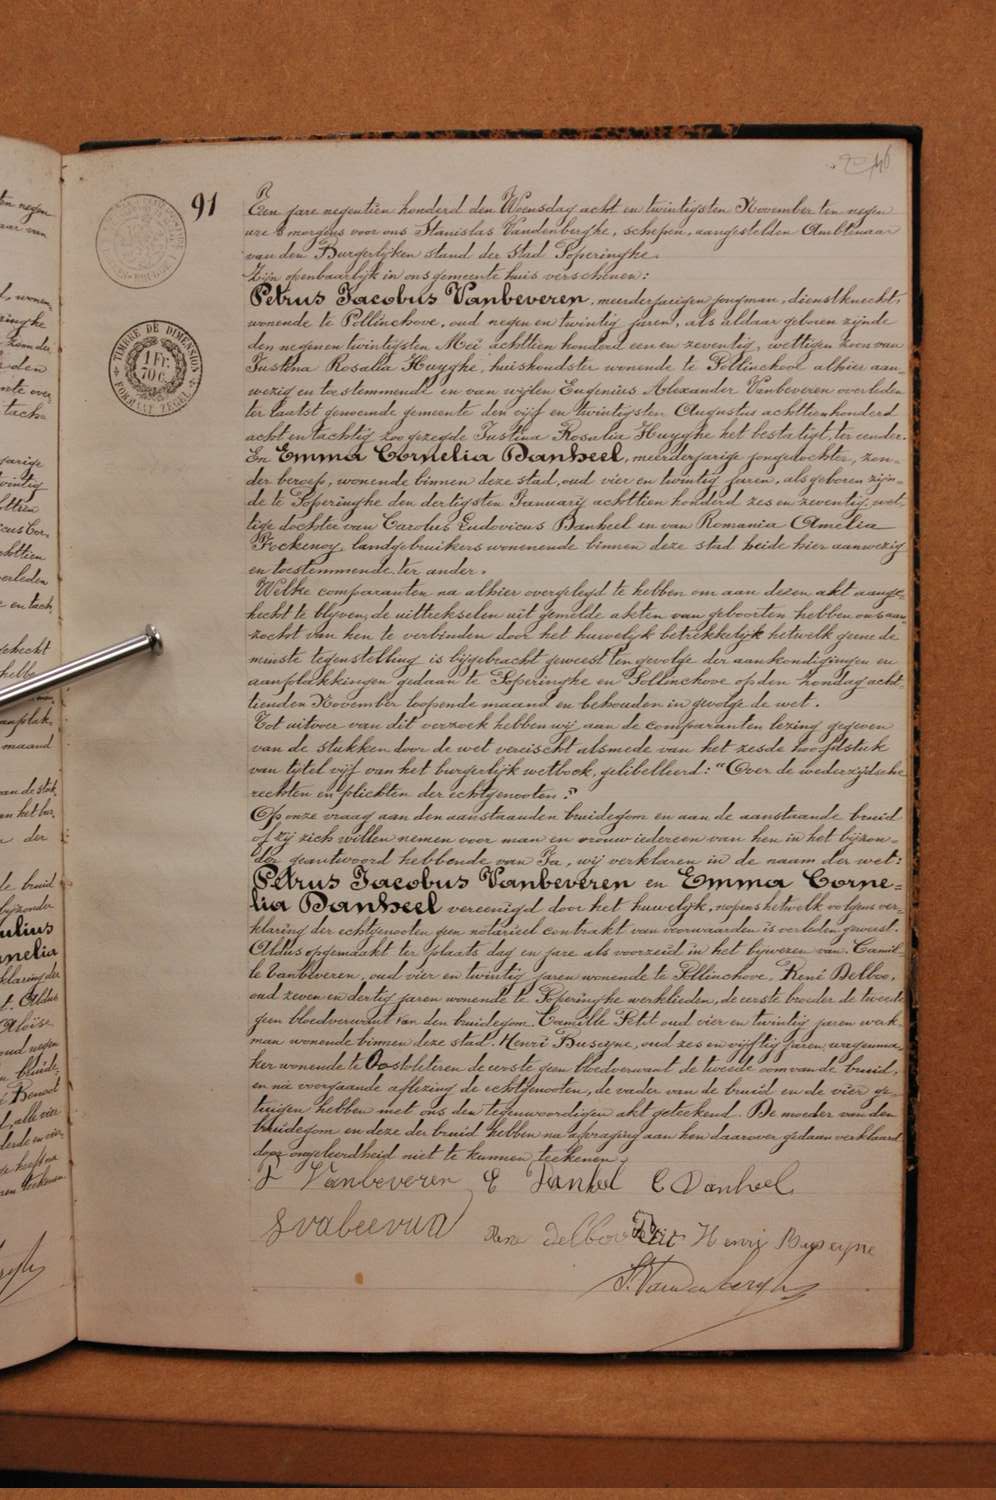 91
Een jare negentien honderd den Woensdag acht en twintigsten November ten negen
ure 's morgens voor ons Stanislas Vandenberghe, schepen, aangestelden Ambtenaar
van den Burgerlijken stand der Stad Poperinghe.
Zijn openbaarlijk in ons gemeente huis verschenen:
Petrus Jacobus Vanbeveren, meerderjarigen jongman, dienstknecht,
wonende te Pollinchove, oud negen en twintig jaren, als aldaar geboren zijnde
den negenen twintigsten Mei achttien honderd een en zeventig, wettigen zoon van
Justina Rosalia Huyghe, huishoudster wonende te Pollinchove alhier aan-
wezig en toestemmende en van wijlen Eugenius Alexander Vanbeveren overleden
ter laatst genoemde gemeente den vijf en twintigsten Augustus achttienhonderd
acht en tachtig zoo gezegde Justina Rosalia Huyghe het bestatigt, ter eender.
En Emma Cornelia Danheel, meerderjarige jongedochter, zon-
der beroep, wonende binnen deze stad, oud vier en twintig jaren, als geboren zijn-
de te Poperinghe den dertigsten Januarij achttien honderd zes en zeventig, wet-
tige dochter van Carolus Ludovicus Danheel en van Romania Amelia
Fockenoy, landgebruikers wonenende binnen deze stad beide hier aanwezig
en toestemmende, ter ander.
Welke comparanten na alhier overgelegd te hebben om aan dezen akt aange-
hecht te blijven, de uittrekselen uit gemelde akten van geboorten hebben ons aan
zocht van hen te verbinden door het huwelijk betrekkelijk hetwelk geene de
minste tegenstelling is bijgebracht geweest ten gevolge der aankondigingen en
aanplakkingen gedaan te Poperinghe en Pollinchove op den Zondag acht-
tienden November loopende maand en behouden in gevolge de wet.
Tot uitvoer van dit verzoek hebben wij aan de comparanten lezing gegeven
van de stukken door de wet vereischt alsmede van het zesde hoofdstuk
van tijtel vijf van het burgerlijk wetboek, gelibelleerd: "Over de wederzijdsche
rechten en plichten der echtgenooten."
Op onze vraag aan den aanstaanden bruidegom en aan de aanstaande bruid
of zij zich willen nemen voor man en vrouw iedereen van hen in het bijzon-
der geantwoord hebbende van Ja, wij verklaren in de naam der wet:
Petrus Jacobus Vanbeveren en Emma Corne-
lia Danheel vereenigd door het huwelijk, nopens hetwelk volgens ver-
klaring der echtgenooten geen notarieel contrakt van voorwaarden is verleden geweest.
Aldus opgemaakt ter plaats dag en jare als voorzeid in het bijwezen van Camil-
le Vanbeveren, oud vier en twintig jaren wonende te Pollinchove, René Delboo,
oud zeven en dertig jaren wonende te Poperinghe werklieden, de eerste broeder de tweede
geen bloedverwant van den bruidegom. Camille Petit oud vier en twintig jaren werk-
man wonende binnen deze stad. Henri Buseyne, oud zes en vijftig jaren, wagenma-
ker wonende te Oostvleteren de eerste geen bloedverwant de tweede oom van de bruid,
en na voorgaande aflezing de echtgenooten, de vader van de bruid en de vier ge-
tuigen hebben met ons den tegenwoordigen akt geteekend. De moeder van den
bruidegom en deze der bruid hebben na afvraging aan hen daarover gedaan verklaard
door ongeleerdheid niet te kunnen teekenen.
P Vanbeveren E Danheel C Danheel
Rene delboo Petit Henri Buseyne
S. Vandenberghe
TIMBRE DE DIMENSION
1 FR.
70 C.
FORMAAT ZEGEL